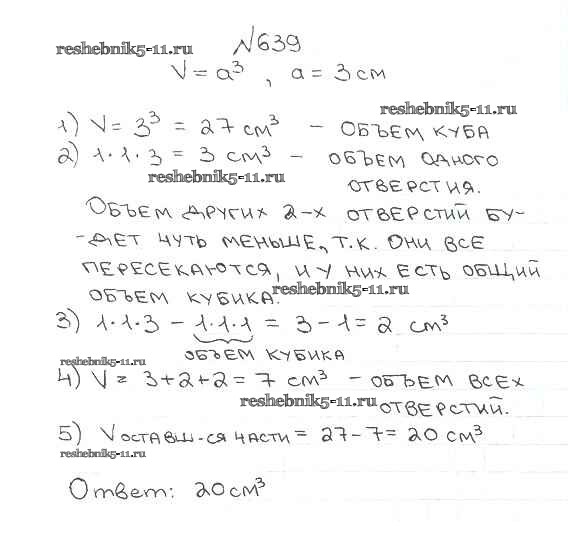 reshebnik5-11.ru №639
V = a³, a = 3 см
reshebnik5-11.ru
1) V = 3³ = 27 см³ – ОБЪЕМ КУБА
2) 1·1·3 = 3 см³ – ОБЪЕМ ОДНОГО
reshebnik5-11.ru ОТВЕРСТИЯ.
ОБЪЕМ ДРУГИХ 2-х ОТВЕРСТИЙ БУ-
-ДЕТ ЧУТЬ МЕНЬШЕ, Т.К. ОНИ ВСЕ
ПЕРЕСЕКАЮТСЯ, И У НИХ ЕСТЬ ОБЩИЙ
ОБЪЕМ КУБИКА. reshebnik5-11.ru
3) 1·1·3 – 1·1·1 = 3 – 1 = 2 см³
ОБЪЕМ КУБИКА
reshebnik5-11.ru
4) V = 3+2+2 = 7 см³ – ОБЪЕМ ВСЕХ
reshebnik5-11.ru ОТВЕРСТИЙ.
5) V ОСТАВШ-СЯ ЧАСТИ = 27–7 = 20 см³
reshebnik5-11.ru
Ответ: 20 см³